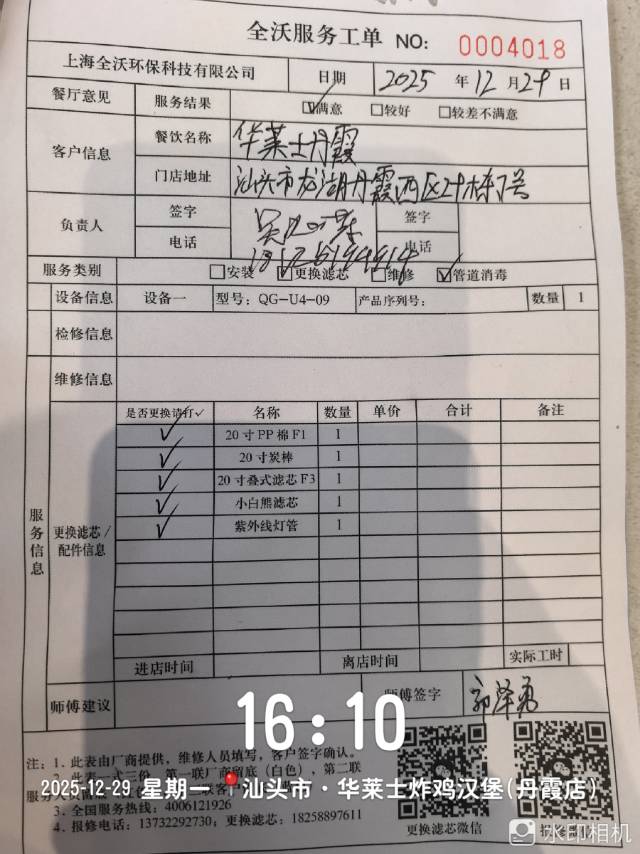 全沃服务工单 NO: 0004018
上海全沃环保科技有限公司 日期 2025 年 12 月 29 日
餐厅意见 服务结果 满意 较好 较差不满意
客户信息 餐饮名称 华莱士丹霞
门店地址 汕头市龙湖丹霞西区24栋7号
负责人 签字 签字
电话 电话
服务类别 安装 更换滤芯 维修 管道消毒
设备信息 设备一 型号: QG-U4-09 产品序列号: 数量 1
检修信息
维修信息
服务信息
更换滤芯/配件信息
是否更换请打✓ 名称 数量 单价 合计 备注
✓ 20寸PP棉F1 1
✓ 20寸炭棒 1
✓ 20寸叠式滤芯F3 1
✓ 小白熊滤芯 1
✓ 紫外线灯管 1
进店时间 离店时间 实际工时
师傅建议 师傅签字 郭泽勇
16:10
注: 1. 此表由厂商提供, 维修人员填写, 客户签字确认。
2. 此表一式三份, 第一联厂商留底(白色), 第二联
2025-12-29 星期一 汕头市·华莱士炸鸡汉堡(丹霞店)
3. 全国服务热线: 4006121926
4. 报修电话: 13732292730; 更换滤芯: 18258897611
更换滤芯微信
水印相机